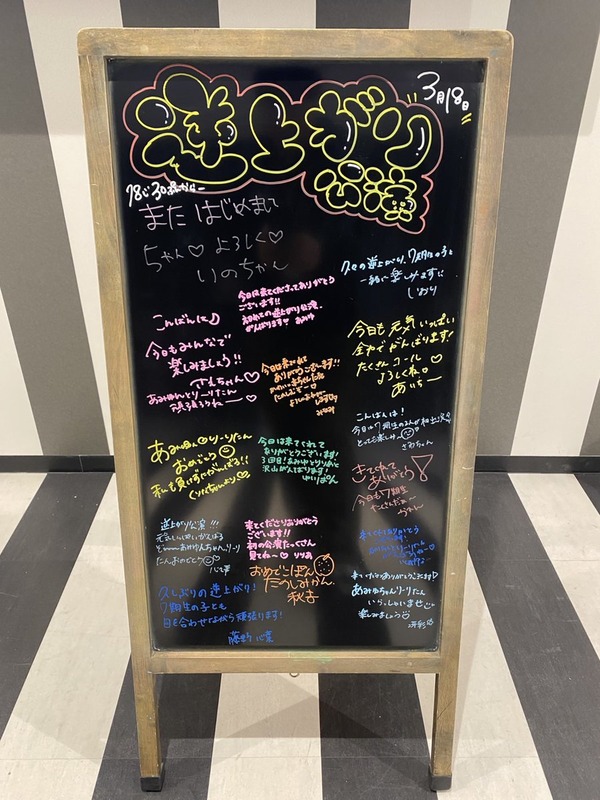 3月18日
逆上がり
公演
18じ30分から〜
また はじめまして
ちゃん♡ よろしく♡
いのちゃん
久々の逆上がり、7期生の子と
一緒に楽しみます!!
しおり
今日は来てくださってありがとう
ございます!!
初めての逆上がり公演、
がんばります♡ あみゆ
こんばんは♪
今日もみんなで
楽しみましょう!!
さえちゃん♡
あみゆんとりーりたん
頑張ろうねー♡
今日も元気いっぱい
全力でがんばります!
たくさんコール
よろしくね♡
あいちー
今日は来てくれて
ありがとうございます!!
こんばんは!
とっても楽しみ〜
さおちゃん
あみゆん♡りーりたん
おめでとう
私も負けずにがんばる!!
今日は来てくれて
ありがとうございます!
3回目!あみゆとりりあと
沢山がんばります!
ゆいぽん
きてくれて
ありがとう!
今日も7期生
逆上がり公演!!!
元気いっぱいがんばる
たんおめでとう
心等
来てくださりありがとう
ございます!!
初の公演たっくさん
見てね〜♡ りりあ
おめでとぽん
たのしみかん
秋吉
来てくださりありがとうございます♡
あみゆちゃんりーりたん
いらっしゃいませ
楽しみましょう
冴彩
久しぶりの逆上がり!
7期生の子とも
目を合わせてながら頑張ります!
藤野 心葉